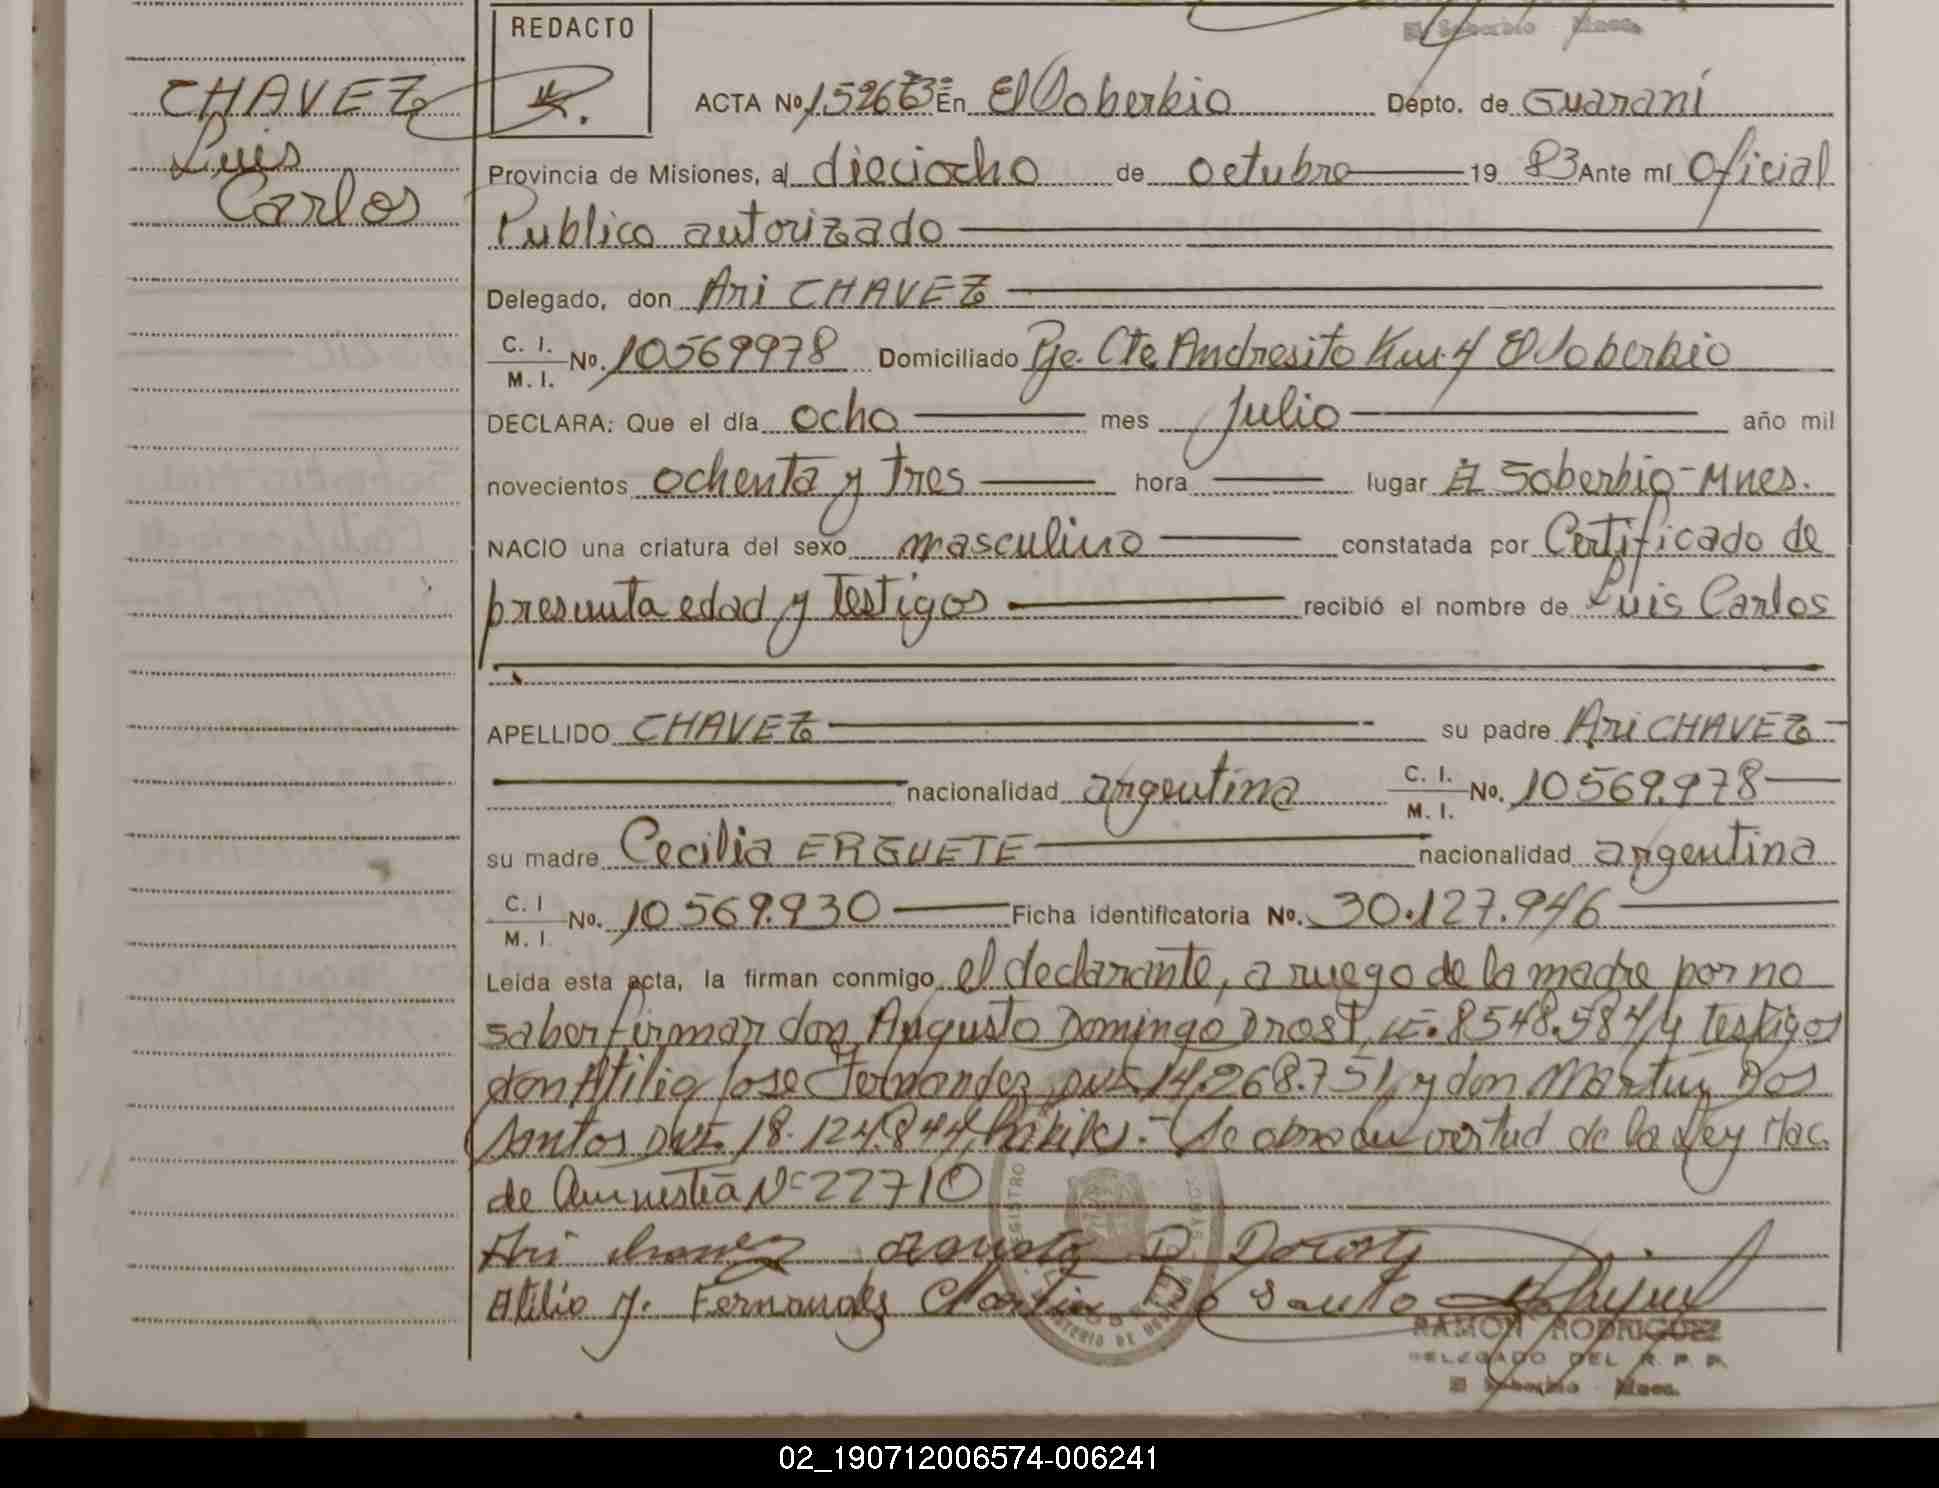 REDACTO
El Soberbio Mnes.
CHAVEZ
Luis
Carlos
ACTA Nº En El Soberbio Depto. de Guaraní
Provincia de Misiones, al dieciocho de octubre 19 83 Ante mí Oficial
Publico autorizado
Delegado, don Ari CHAVEZ
C. I. / M. I. Nº. 10569978 Domiciliado Pje. Cte Andresito Km. 4 El Soberbio
DECLARA: Que el día ocho mes Julio año mil
novecientos ochenta y tres hora lugar El Soberbio - Mnes.
NACIO una criatura del sexo masculino constatada por Certificado de
presunta edad y testigos recibió el nombre de Luis Carlos
APELLIDO CHAVEZ su padre Ari CHAVEZ
nacionalidad argentina C. I. / M. I. Nº. 10569.978
su madre Cecilia ERGUETE nacionalidad argentina
C. I / M. I. Nº. 10569.930 Ficha identificatoria Nº. 30.127.946
Leída esta acta, la firman conmigo el declarante, a ruego de la madre por no
saber firmar don Augusto Domingo Drost, LE. 8548.584, y testigos
don Atilio Jose Fernandez DNI. 14.268.751, y don Martin Dos
Santos DNI. 18.124.844, hábiles. - Se abre en virtud de la Ley Nac.
de Amnistía Nº 22710
Ari Chavez Augusto D Dorosty
Atilio J. Fernandez Martin Do Santo
RAMON RODRIGUEZ
DELEGADO DEL R. P. P.
El Soberbio Mnes.
02_190712006574-006241